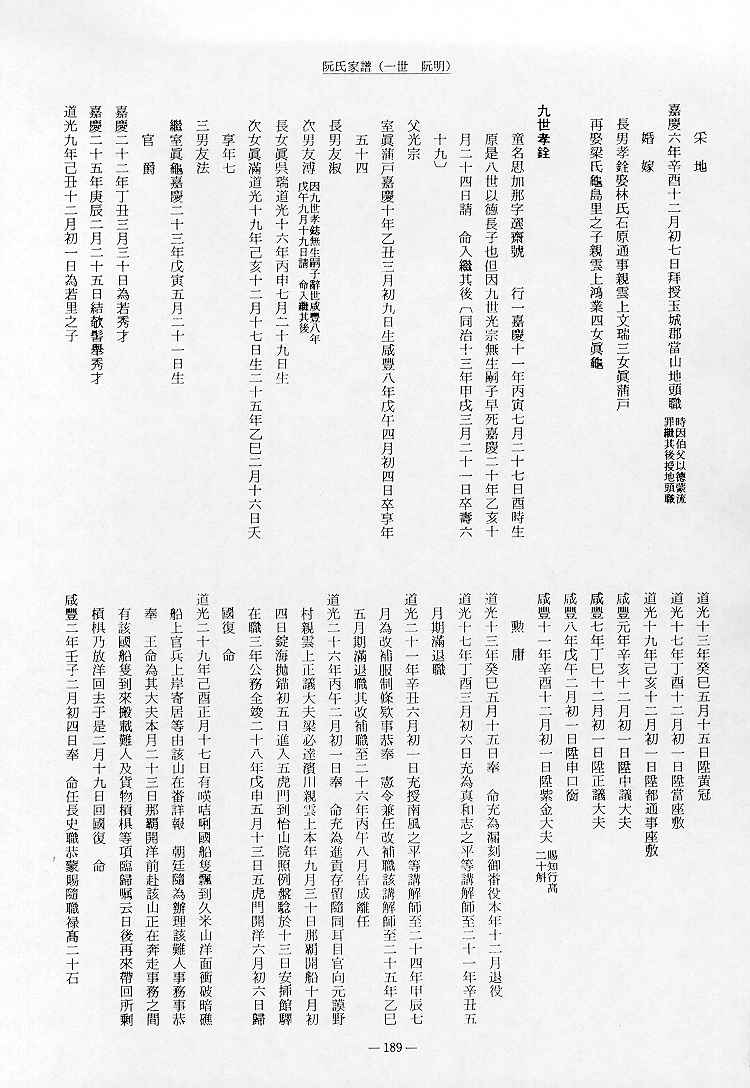 阮氏家譜（一世　阮明）
采地
嘉慶六年辛酉十二月初七日拜授玉城郡當山地頭職 時因伯父以德蒙流
罪繼其後授地頭職
婚嫁
長男孝銓娶林氏石原通事親雲上文瑞三女眞蒲戸
再娶梁氏龜島里之子親雲上鴻業四女眞龜
九世孝銓
童名思加那字選齋號　行一嘉慶十一年丙寅七月二十七日酉時生
原是八世以德長子也但因九世光宗無生嗣子早死嘉慶二十年乙亥十
月二十四日請　命入繼其後〔同治十三年甲戌三月二十一日卒壽六
十九〕
父光宗
室眞蒲戸嘉慶十年乙丑三月初九日生咸豐八年戊午四月初四日卒享年
五十四
長男友淑
次男友溥 因九世孝鋕無生嗣子辭世咸豐八年
戊午九月十九日請　命入繼其後
長女眞吳瑞道光十六年丙申七月二十九日生
次女眞滿道光十九年己亥十二月十七日生二十五年乙巳二月十六日夭
享年七
三男友法
繼室眞龜嘉慶二十三年戊寅五月二十一日生
官爵
嘉慶二十二年丁丑三月三十日為若秀才
嘉慶二十五年庚辰二月二十五日結敧髻舉秀才
道光九年己丑十二月初一日為若里之子
道光十三年癸巳五月十五日陞黃冠
道光十七年丁酉十二月初一日陞當座敷
道光十九年己亥十二月初一日陞都通事座敷
咸豐元年辛亥十二月初一日陞中議大夫
咸豐七年丁巳十二月初一日陞正議大夫
咸豐八年戊午二月初一日陞申口銜
咸豐十一年辛酉十二月初一日陞紫金大夫 賜知行高
二十斛
勲庸
道光十三年癸巳五月十五日奉　命充為漏刻御番役本年十二月退役
道光十七年丁酉三月初六日充為真和志之平等講解師至二十一年辛丑五
月期滿退職
道光二十一年辛丑六月初一日充授南風之平等講解師至二十四年甲辰七
月為改補服制條欵事恭奉　憲令兼任改補職該講解師至二十五年乙巳
五月期滿退職其改補職至二十六年丙午八月告成離任
道光二十六年丙午二月初一日奉　命充為進貢存留隨同耳目官向元謨野
村親雲上正議大夫梁必達濱川親雲上本年九月三十日那覇開船十月初
四日錠海拋錨初五日進入五虎門到怡山院照例盤驗於十三日安揷館驛
在職三年公務全竣二十八年戊申五月十三日五虎門開洋六月初六日歸
國復　命
道光二十九年己酉正月十七日有㗸咭唎國船隻飄到久米山洋面衝破暗礁
船上官兵上岸寄居等由該山在番詳報　朝廷隨為辦理該難人事務事恭
奉　王命為其大夫本月二十三日那覇開洋前赴該山正在奔走事務之間
有該國船隻到來搬載難人及貨物槓椇等項臨歸嘱云日後再來帶回所剩
槓椇乃放洋回去于是二月十九日回國復　命
咸豐二年壬子二月初四日奉　命任長史職恭蒙賜隨職祿髙二十石
— 189 —